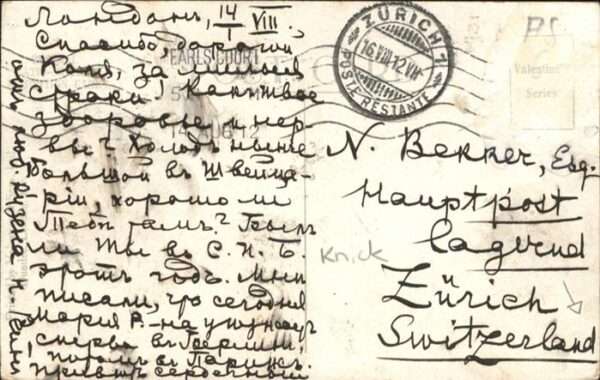 Лондонъ, 14/1 VIII.
Спасибо, дорогой
Коля, за милыя
строки! Какъ твое
здоровье и нер-
вы? Холодъ нынче
большой въ Швейца-
ріи, хорошо ли
Тебѣ тамъ? Былъ
ли ты въ С.П.Б.
этотъ годъ. Мнѣ
писали, что сегодня
Марія
сперва въ Берлин
потомъ въ Парижъ.
Привѣтъ сердечный
EARLS COURT
12
ZÜRICH 1
16.VIII.12.VII
POSTE RESTANTE
PS
Valentine's
Series
N. Bekker, Esq.
Hauptpost
lagernd
Zürich
Switzerland
Knick